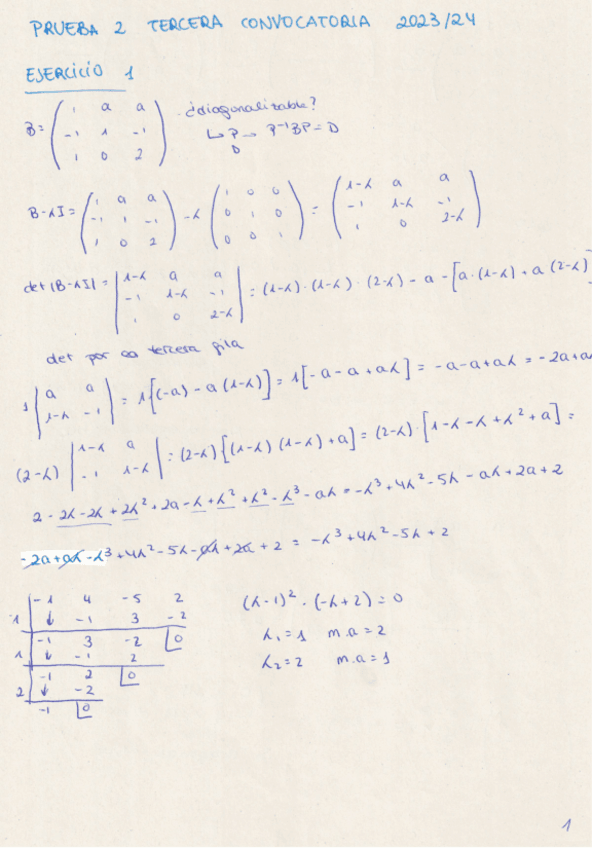 PRUEBA 2 TERCERA CONVOCATORIA 2023/24
EJERCICIO 1
B = ( 1 a a ; -1 1 -1 ; 1 0 2 ) ¿diagonalizable?
↳ P → P⁻¹BP = D
D
B-λI = ( 1 a a ; -1 1 -1 ; 1 0 2 ) - λ ( 1 0 0 ; 0 1 0 ; 0 0 1 ) = ( 1-λ a a ; -1 1-λ -1 ; 1 0 2-λ )
det |B-λI| = | 1-λ a a ; -1 1-λ -1 ; 1 0 2-λ | = (1-λ)·(1-λ)·(2-λ) - a - [a·(1-λ) + a(2-λ)
det por la tercera fila
1 | a a ; 1-λ -1 | = 1[(-a) - a(1-λ)] = 1[-a - a + aλ] = -a - a + aλ = -2a + a
(2-λ) | 1-λ a ; -1 1-λ | = (2-λ)[(1-λ)(1-λ) + a] = (2-λ)·[1-λ-λ+λ²+a] =
2 - 2λ - 2λ + 2λ² + 2a - λ + λ² + λ² - λ³ - aλ = -λ³ + 4λ² - 5λ - aλ + 2a + 2
-2a + aλ - λ³ + 4λ² - 5λ - aλ + 2a + 2 = -λ³ + 4λ² - 5λ + 2
-1 4 -5 2
1 ↓ -1 3 -2
-1 3 -2 0
1 ↓ -1 2
-1 2 0
2 ↓ -2
-1 0
(λ-1)²·(-λ+2) = 0
λ₁ = 1 m.a = 2
λ₂ = 2 m.a = 1
1